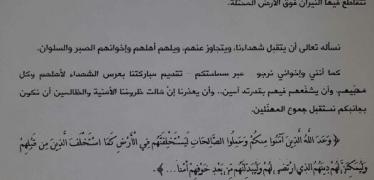 تتقاطع فيها النيران فوق الأرض المحتلة.
نسأله تعالى أن يتقبل شهداءنا، ويتجاوز عنهم، ويلهم أهلهم وإخوانهم الصبر والسلوان.
كما أنني وإخواني نرجو عبر سماحتكم - تقديم مباركتنا بعرس الشهداء لأهلهم وكل
محبيهم، وأن يشفعهم فيهم بقدرته آمين.. وأن يعذرنا إن حالت ظروفنا الأمنية والظالمين أن نكون
بجانبكم نستقبل جموع المهنئين.
﴿ وَعَدَ اللَّهُ الَّذِينَ آمَنُوا مِنكُمْ وَعَمِلُوا الصَّالِحَاتِ لَيَسْتَخْلِفَنَّهُمْ فِي الْأَرْضِ كَمَا اسْتَخْلَفَ الَّذِينَ مِن قَبْلِهِمْ
وَلَيُمَكِّنَنَّ لَهُمْ دِينَهُمُ الَّذِي ارْتَضَى لَهُمْ وَلَيُبَدِّلَنَّهُم مِّن بَعْدِ خَوْفِهِمْ أَمْنًا... ﴾.